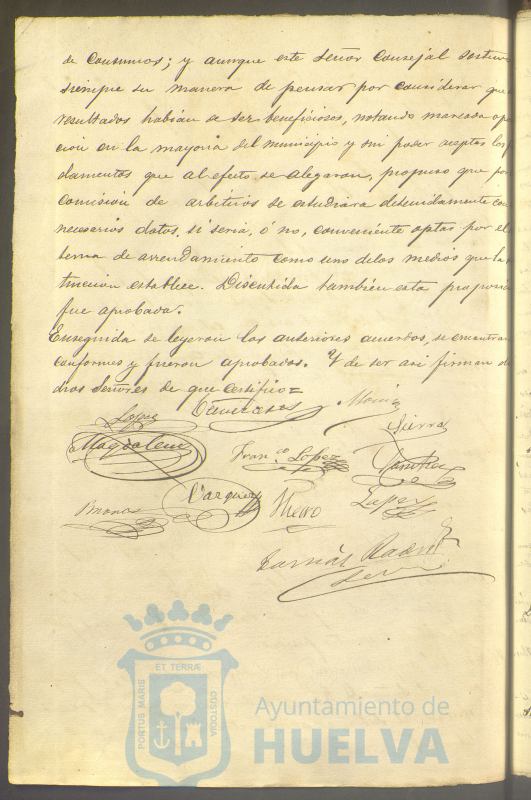 de consumos; y aunque este señor Consejal sostuvo
siempre su manera de pensar por considerar que
resultados habian de ser beneficiosos, notando marcada opo
cicion en la mayoria del municipio y sin poder aceptar los
damentos que al efecto se alegaran, propuso que por
Comision de arbitrios se estudiara detenidamente con
necesarios datos, si seria, ó no, conveniente optar por el
tema de arrendamiento como uno de los medios que la
truccion establece. Discutida tambien esta proposi
fue aprobada.
Enseguida se leyeron los anteriores acuerdos, se encontraron
conformes y fueron aprobados. Y de ser asi firman di
chos Señores de que certifico=
Lopez
Sierra
Magdalena
Fran.co Lopez
Sanchez
Vazquez
Lopez
ET TERRÆ
PORTUS MARIS
CUSTODIA
Ayuntamiento de
HUELVA